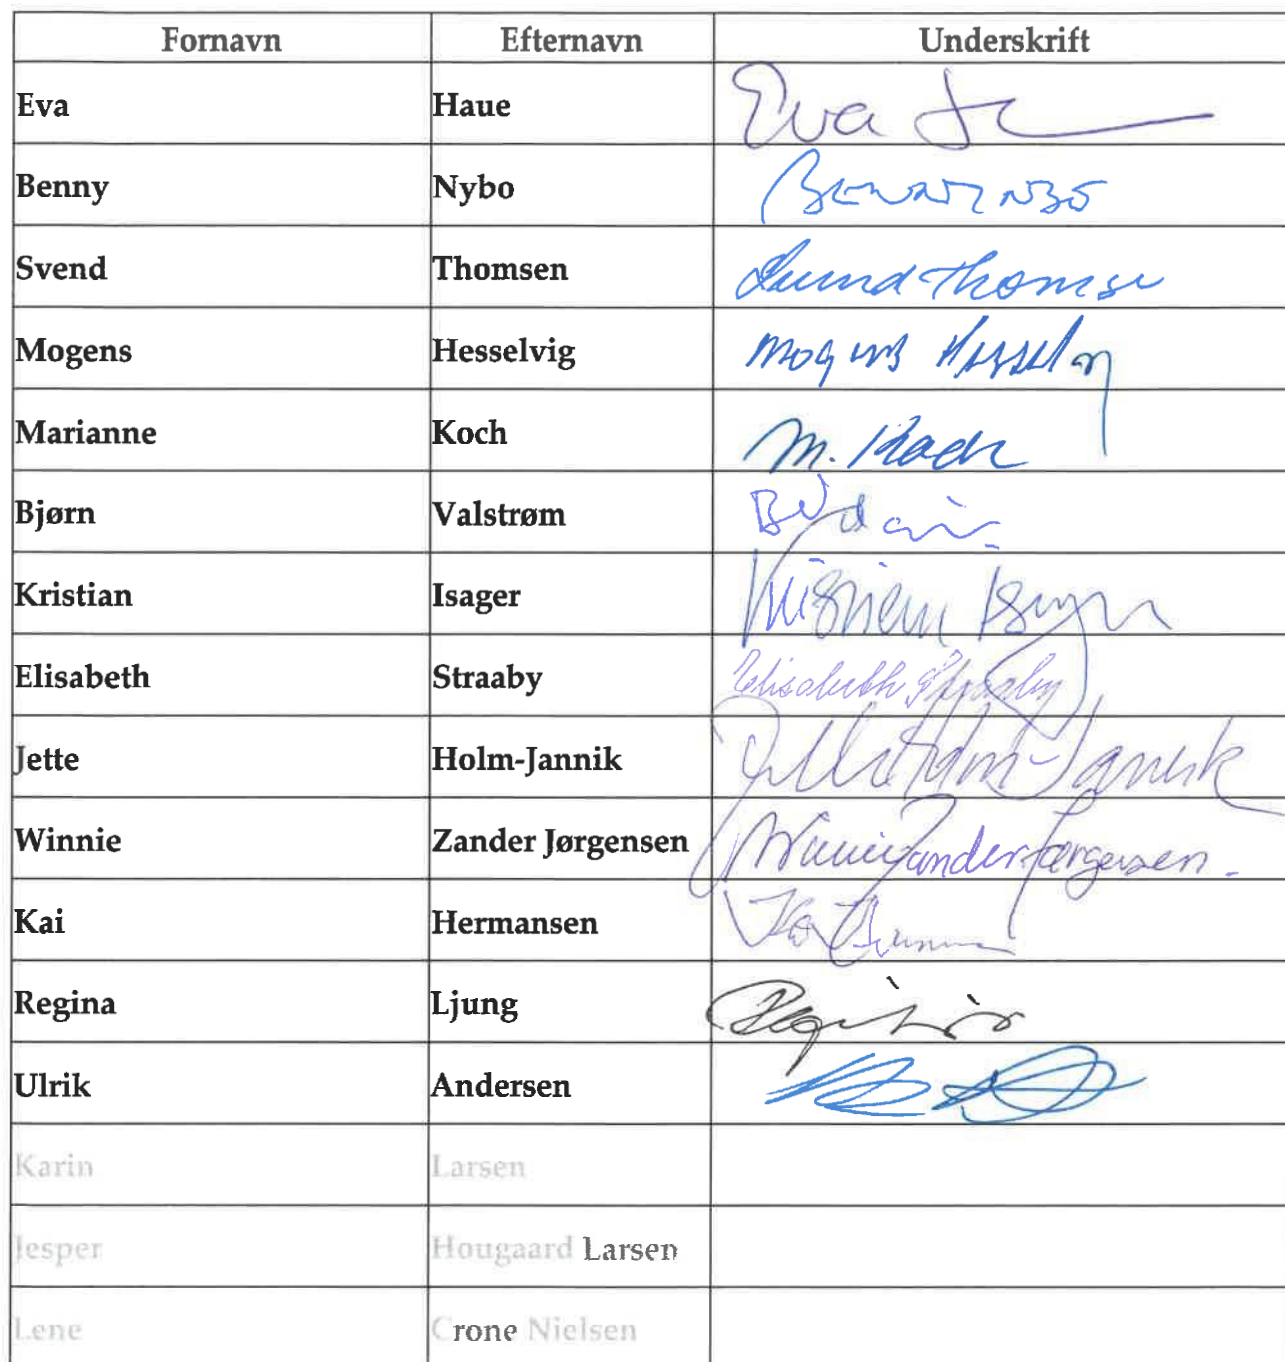 Fornavn Efternavn Underskrift
Eva Haue Eva
Benny Nybo
Svend Thomsen Svend Thomsen
Mogens Hesselvig Mogens Hesselvig
Marianne Koch M. Koch
Bjørn Valstrøm
Kristian Isager Kristian Isager
Elisabeth Straaby Elisabeth Straaby
Jette Holm-Jannik Jette Holm-Jannik
Winnie Zander Jørgensen Winnie Zander Jørgensen.
Kai Hermansen
Regina Ljung
Ulrik Andersen
Karin Larsen
Jesper Hougaard Larsen
Lene Crone Nielsen